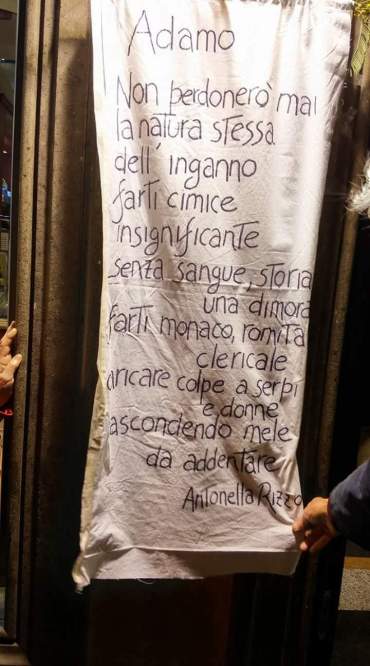 Adamo
Non perdonerò mai
la natura stessa
dell'inganno
farti cimice
insignificante
senza sangue, storia
una dimora
farti monaco, romita
clericale
aricare colpe a serpi
e donne
ascondendo mele
da addentare
Antonella Rizzo